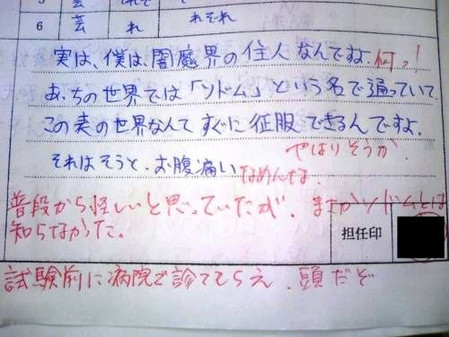 6 芸 れ れそれ
実は、僕は、闇魔界の住人なんですよ。何っ!
あっちの世界では「ソドム」という名で通っていて
この表の世界なんてすぐに征服できるんですよ。
やはりそうか。
それはそうと、お腹痛い なめんな。
普段から怪しいと思っていたが、まさかソドムとは
知らなかった。
担任印
試験前に病院で診てもらえ、頭だぞ